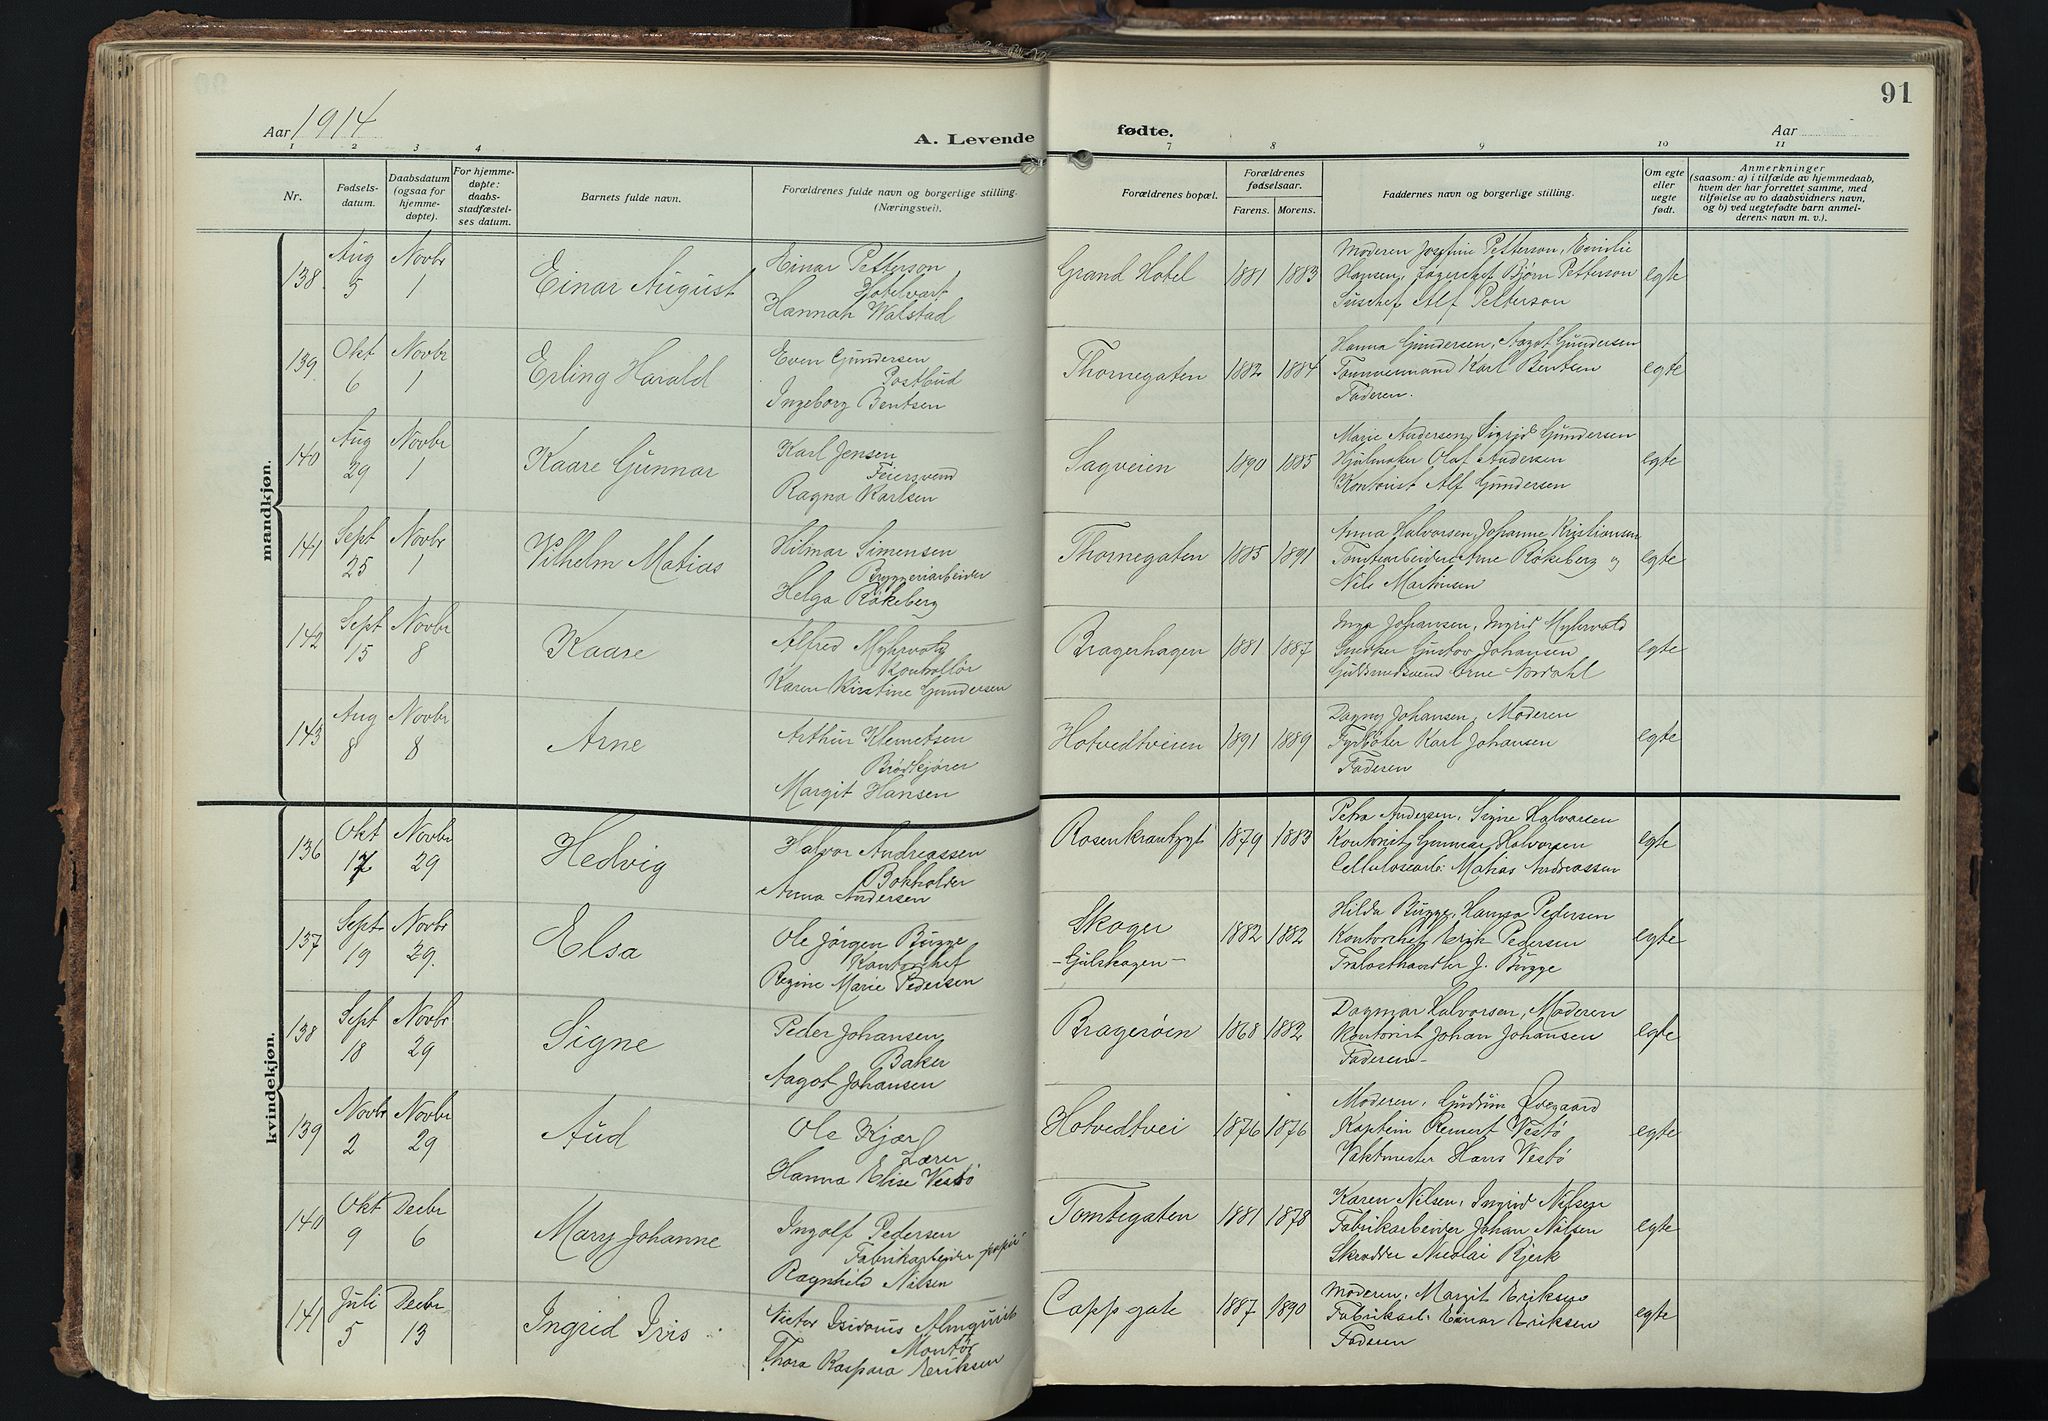 91
Aar 1914
A. Levende fødte.
Aar
1 2 3 4 7 8 9 10 11
Nr.
Fødsels-
datum.
Daabsdatum
(ogsaa for
hjemme-
døpte).
For hjemme-
døpte:
daabs-
stadfæstel-
ses datum.
Barnets fulde navn.
Forældrenes fulde navn og borgerlige stilling.
(Næringsvei).
Forældrenes bopæl.
Forældrenes
fødselsaar.
Farens. Morens.
Faddernes navn og borgerlige stilling.
Om egte
eller
uegte
født.
Anmerkninger
(saasom: a) i tilfælde av hjemmedaab,
hvem der har forrettet samme, med
tilføielse av to daabsvidners navn,
og b) ved uegtefødte barn anmel-
derens navn m. v.).
mandkjøn.
138 Aug 5 Novbr 1 Einar August
Einar Petterson
Hotelvært
Hannah Walstad
Grand Hotel 1881 1883
Moderen Josefine Petterson, Emilie
Hansen, Bjørn Petterson
Alf Petterson
egte
139 Okt 6 Novbr 1 Erling Harald
Even Gundersen
Postbud
Ingeborg Bentsen
Thornegaten 1882 1884
Hanna Gundersen, Aagot Gundersen
Tømmermand Karl Bentsen
Faderen.
egte
140 Aug 29 Novbr 1 Kaare Gunnar
Karl Jensen
Feiersvend
Ragna Karlsen
Sagveien 1890 1885
Marie Andersen, Sigrid Gundersen
Hjulmaker Olaf Andersen
Kontorist Alf Gundersen
egte
141 Sept 25 Novbr 1 Vilhelm Matias
Hilmar Simensen
Bryggeriarbeider
Helga Røkeberg
Thornegaten 1885 1891
Anna Halvorsen, Johanne Kristiansen
Tomtearbeidere Arne Røkeberg og
Nils Martinsen
egte
142 Sept 15 Novbr 8 Kaare
Alfred Myhrvold
Kontrollør
Karen Kirstine Gundersen
Bragerhagen 1881 1887
Inga Johansen, Ingrid Myhrvold
Snekker Gustav Johansen
Guldsmedsvend Arne Nordahl
egte
143 Aug 8 Novbr 8 Arne
Arthur Klemetsen
Brødkjører
Margit Hansen
Hotvedtveien 1891 1889
Dagny Johansen, Moderen
Fyrbøter Karl Johansen
Faderen
egte
kvindekjøn.
136 Okt 17 Novbr 29 Hedvig
Halvor Andreassen
Bokholder
Anna Andersen
Rosenkrantzgt 1879 1883
Petra Andersen, Signe Halvorsen
Kontorist Gunnar Halvorsen
Cellulosearb: Matias Andreassen
egte
137 Sept 19 Novbr 29. Elsa
Ole Jørgen Bugge
Kontorchef
Regine Marie Pedersen
Skoger
-Gulskogen-
1882 1882
Hilda Bugge, Hanna Pedersen
Kontorchef Erik Pedersen
Trælasthandler J. Bugge
egte
138 Sept 18 Novbr 29 Signe
Peder Johansen
Baker
Aagot Johansen
Bragerøen 1868 1882
Dagmar Halvorsen, Moderen
Kontorist Johan Johansen
Faderen-
egte
139 Novbr 2 Novbr 29 Aud
Ole Kjær
Lærer
Hanna Elise Vestø
Hotvedtvei 1876 1876
Moderen, Gudrun Øvegaard
Kaptein Remert Vestø
Vaktmester Hans Vestø
egte
140 Okt 9 Decbr 6 Mary Johanne
Ingolf Pedersen
Fabrikarbeider papir
Ragnhild Nilsen
Tomtegaten 1881 1878
Karen Nilsen, Ingrid Nilsen
Fabrikarbeider Johan Nilsen
Skrædder Nicolai Bjerk
egte
141 Juli 5 Decbr 13 Ingrid Iris
Victor Isidorus Almquist
Montør
Thora Kaspara Eriksen
Cappgate 1887 1890
Moderen, Margit Eriksen
Einar Eriksen
Faderen
egte